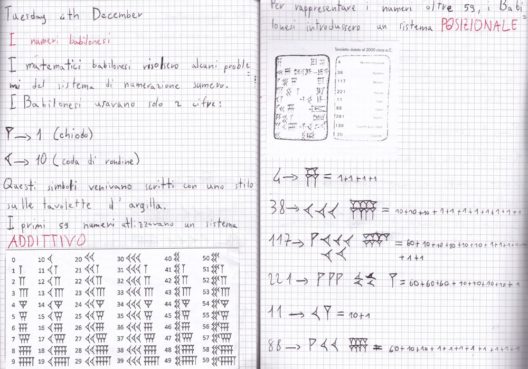 Tuesday 4th December
I numeri babilonesi
I matematici babilonesi risolsero alcuni proble
mi del sistema di numerazione sumero.
I Babilonesi usavano solo 2 cifre:
→ 1 (chiodo)
→ 10 (coda di rondine)
Questi simboli venivano scritti con uno stilo
sulle tavolette d'argilla.
I primi 59 numeri utilizzavano un sistema
ADDITTIVO
0 10 20 30 40 50
1 11 21 31 41 51
2 12 22 32 42 52
3 13 23 33 43 53
4 14 24 34 44 54
5 15 25 35 45 55
6 16 26 36 46 56
7 17 27 37 47 57
8 18 28 38 48 58
9 19 29 39 49 59
Per rappresentare i numeri oltre 59, i Babi
lonesi introdussero un sistema POSIZIONALE
4 → = 1+1+1+1
38 → = 10+10+10+1+1+1+1+1+1+1+1
117 →
221 → = 60+60+60+10+10+10+10+1
11 → = 10+1
88 → = 60+10+10+1+1+1+1+1+1+1+1